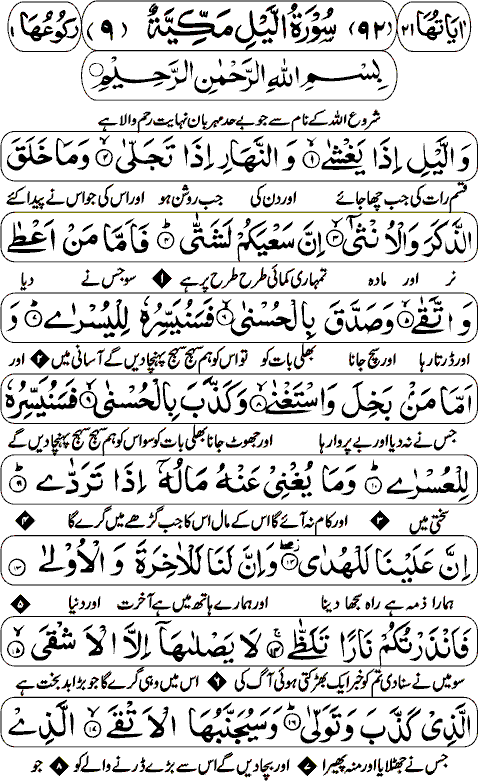 اٰیَاتُهَا ٢١ (٩٢) سُوْرَةُ الَّیْلِ مَکِّیَّةٌ (٩) رُکُوْعُهَا ١
بِسْمِ اللّٰهِ الرَّحْمٰنِ الرَّحِیْمِ
شروع اللہ کے نام سے جو بے حد مہربان نہایت رحم والا ہے
وَالَّیْلِ اِذَا یَغْشٰے ۙ١ وَالنَّهَارِ اِذَا تَجَلّٰی ۙ٢ وَمَا خَلَقَ
قسم رات کی جب چھا جائے اور دن کی جب روشن ہو اور اس کی جو اس نے پیدا کئے
الذَّکَرَ وَالْاُنْثٰی ۙ٣ اِنَّ سَعْیَکُمْ لَشَتّٰی ۭ٤ فَاَمَّا مَنْ اَعْطٰے
نر اور مادہ تمہاری کمائی طرح طرح پر ہے ١ سو جس نے دیا
وَاتَّقٰے ۙ٥ وَصَدَّقَ بِالْحُسْنٰی ۙ٦ فَسَنُیَسِّرُهٗ لِلْیُسْرٰے ۭ٧ وَ
اور ڈرتا رہا اور سچ جانا بھلی بات کو تو اس کو ہم سہج سہج پہنچا دیں گے آسانی میں ٢ اور
اَمَّا مَنْۢ بَخِلَ وَاسْتَغْنٰے ۙ٨ وَکَذَّبَ بِالْحُسْنٰی ۙ٩ فَسَنُیَسِّرُهٗ
جس نے نہ دیا اور بے پروا رہا اور جھوٹ جانا بھلی بات کو سو اس کو ہم سہج سہج پہنچا دیں گے
لِلْعُسْرٰے ۭ١٠ وَمَا یُغْنِیْ عَنْهُ مَالُهٗۤ اِذَا تَرَدّٰے ۭ١١
سختی میں ٣ اور کام نہ آئے گا اس کے مال اس کا جب گڑھے میں گرے گا ٤
اِنَّ عَلَیْنَا لَلْهُدٰی ۖ١٢ وَاِنَّ لَنَا لَلْاٰخِرَةَ وَالْاُوْلٰے ١٣
ہمارا ذمہ ہے راہ سجھا دینا اور ہمارے ہاتھ میں ہے آخرت اور دنیا ٥
فَاَنْذَرْتُکُمْ نَارًا تَلَظّٰے ۚ١٤ لَا یَصْلٰىهَاۤ اِلَّا الْاَشْقَی ۙ١٥
سو میں نے سنا دی تم کو خبر ایک بھڑکتی ہوئی آگ کی ٦ اس میں وہی گرے گا جو بڑا بدبخت ہے
الَّذِیْ کَذَّبَ وَتَوَلّٰی ۭ١٦ وَسَیُجَنَّبُهَا الْاَتْقَے ۙ١٧ الَّذِے
جس نے جھٹلایا اور منہ پھیرا ٧ اور بچا دیں گے اس سے بڑے ڈرنے والے کو ٨ جو